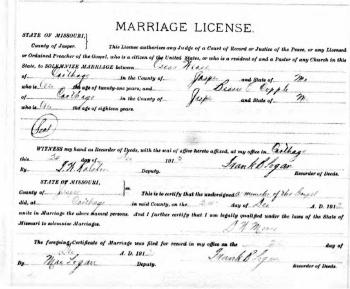 MARRIAGE LICENSE.
STATE OF MISSOURI,
County of Jasper. This License authorizes any Judge of a Court of Record or Justice of the Peace, or any Licensed
or Ordained Preacher of the Gospel, who is a citizen of the United States, or who is a resident of and a Pastor of any Church in this
State, to SOLEMNIZE MARRIAGE between Oscar
of Carthage in the County of Jasper and State of Mo
who is the age of twenty-one years, and
of Carthage in the County of and State of M
who is the age of eighteen years.
(Seal)
WITNESS my hand as Recorder of Deeds, with the seal of office hereto affixed, at my office in Carthage
this day of Dec 191
By Deputy. Frank B. Logan Recorder of Deeds.
STATE OF MISSOURI,
County of This is to certify that the undersigned a minister of the Gospel
did, at Carthage in said County, on the day of Dec A. D. 191
unite in Marriage the above named persons. And I further certify that I am legally qualified under the laws of the State of
Missouri to solemnize Marriages.
The foregoing Certificate of Marriage was filed for record in my office on the day of
A. D. 191
By Mae Logan Deputy. Frank B. Logan Recorder of Deeds.